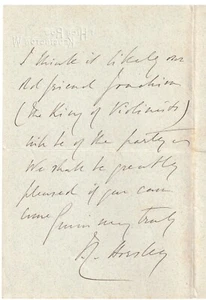 I think it likely our
old friend Joachim
(the King of Violinists)
will be of the party &
We shall be greatly
pleased if you can
come
very truly
J.C. Horsley